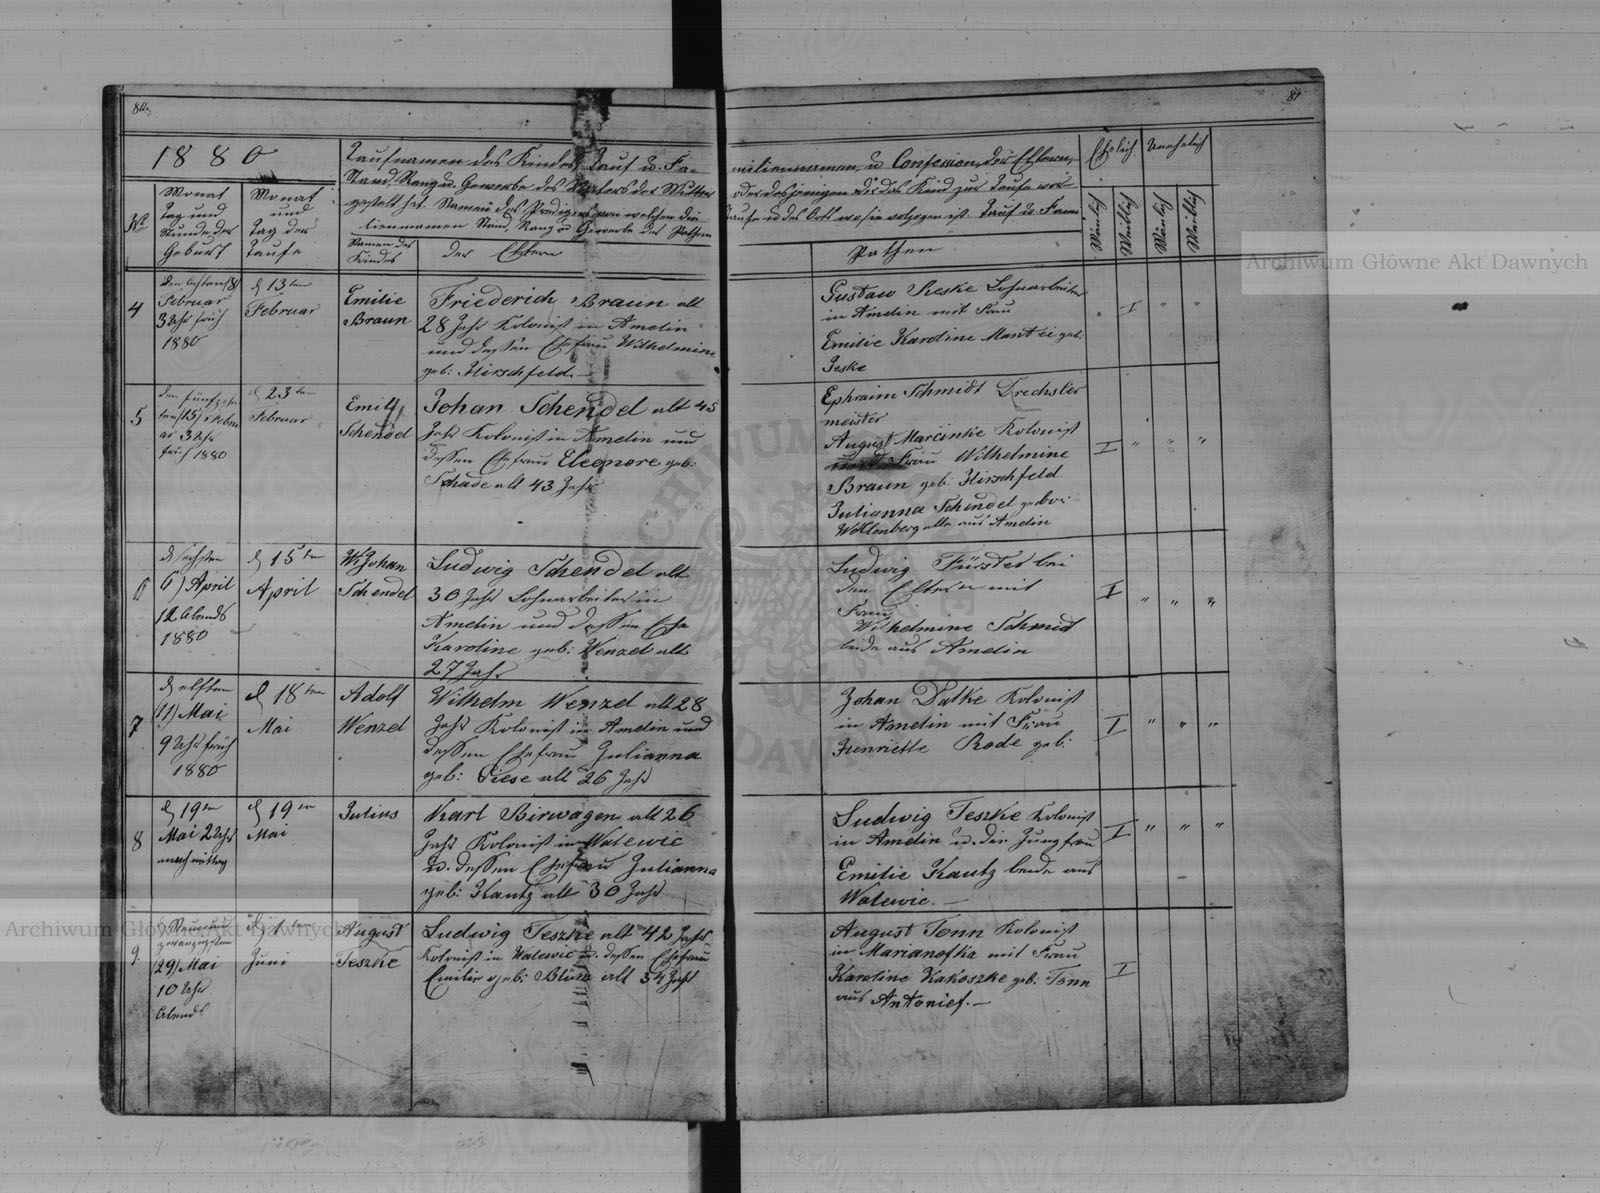 81
1880
Taufnamen des Kindes, Tauf u. Fa-
miliennamen u Confession, der Eltern,
Stand, Rang u. Gewerbe des Vaters der Mutter
oder desjenigen der das Kind zur Taufe
gestelt hat. Namen des Predigers von welchen die
Taufe u des Orts wo sie volzogen ist Tauf u Fami
liennamen Stand, Rang u Gewerbe der Pathen
Ehelich Unehelich
Monat
Tag und
Stunde der
Geburt
Monat
und
Tag der
Taufe
Namen des
Kindes
der Eltern
Pathen
Mänlich
Weiblich
Mänlich
Weiblich
4
Februar
3 Uhr früh
1880
d 13ten
Februar
Emilie
Braun
Friederich Braun alt
28 Jahr Kolonist in Amelin
und dessen Ehefrau Wilhelmine
geb: Hirschfeld.
Gustaw Jeske Lohnarbeiter
in Amelin mit Frau
Emilie Karoline Mantei geb:
Jeske
" I " "
5
den fünfzehn
ten (15) Febru
ar 3 Uhr
früh 1880
d 23ten
Februar
Emil
Schendel
Johan Schendel alt 45
Jahr Kolonist in Amelin und
dessen Ehefrau Eleonore geb:
Schade alt 43 Jahr
Ephraim Schmidt Drechsler
meister
August Marcinke Kolonist
Frau Wilhelmine
Braun geb: Hirschfeld
Julianna Schendel gebor:
Wollenberg alle aus Amelin
I " " "
6
d sechsten
6) April
12 Abends
1880
d 15ten
April
Johan
Schendel
Ludwig Schendel alt
30 Jahr Lohnarbeiter in
Amelin und dessen Ehe
Karoline geb: Wenzel alt
27 Jahr
Ludwig Fürster bei
den Eltern mit
Frau
Wilhelmine Schmid
beide aus Amelin
I " " "
7
d elften
11) Mai
9 Uhr früh
1880
d 18ten
Mai
Adolf
Wenzel
Wilhelm Wenzel alt 28
Jahr Kolonist in Amelin und
dessen Ehefrau Julianna
geb: Giese alt 26 Jahr
Johan Datke Kolonist
in Amelin mit Frau
Henriette Rode geb:
I " " "
8
d 19ten
Mai 2 Uhr
nachmittag
d 19ten
Mai
Julius
Karl Birwagen alt 26
Jahr Kolonist in Walewic
u. dessen Ehefrau Julianna
geb: Kautz alt 30 Jahr
Ludwig Teszke Kolonist
in Amelin u. die Jungfrau
Emilie Kautz beide aus
Walewic.
I " " "
9
zwanzigsten
(29) Mai
10 Uhr
Abends
d 1ten
Juni
August
Teszke
Ludwig Teszke alt 42 Jahr
Kolonist in Walewic u. dessen Ehefrau
Emilie geb: alt 34 Jahr
August Tonn Kolonist
in Marianofka mit Frau
Karoline Kakoszke geb: Tonn
aus Antonief.
I
Archiwum Główne Akt Dawnych
Archiwum Główne Akt Dawnych